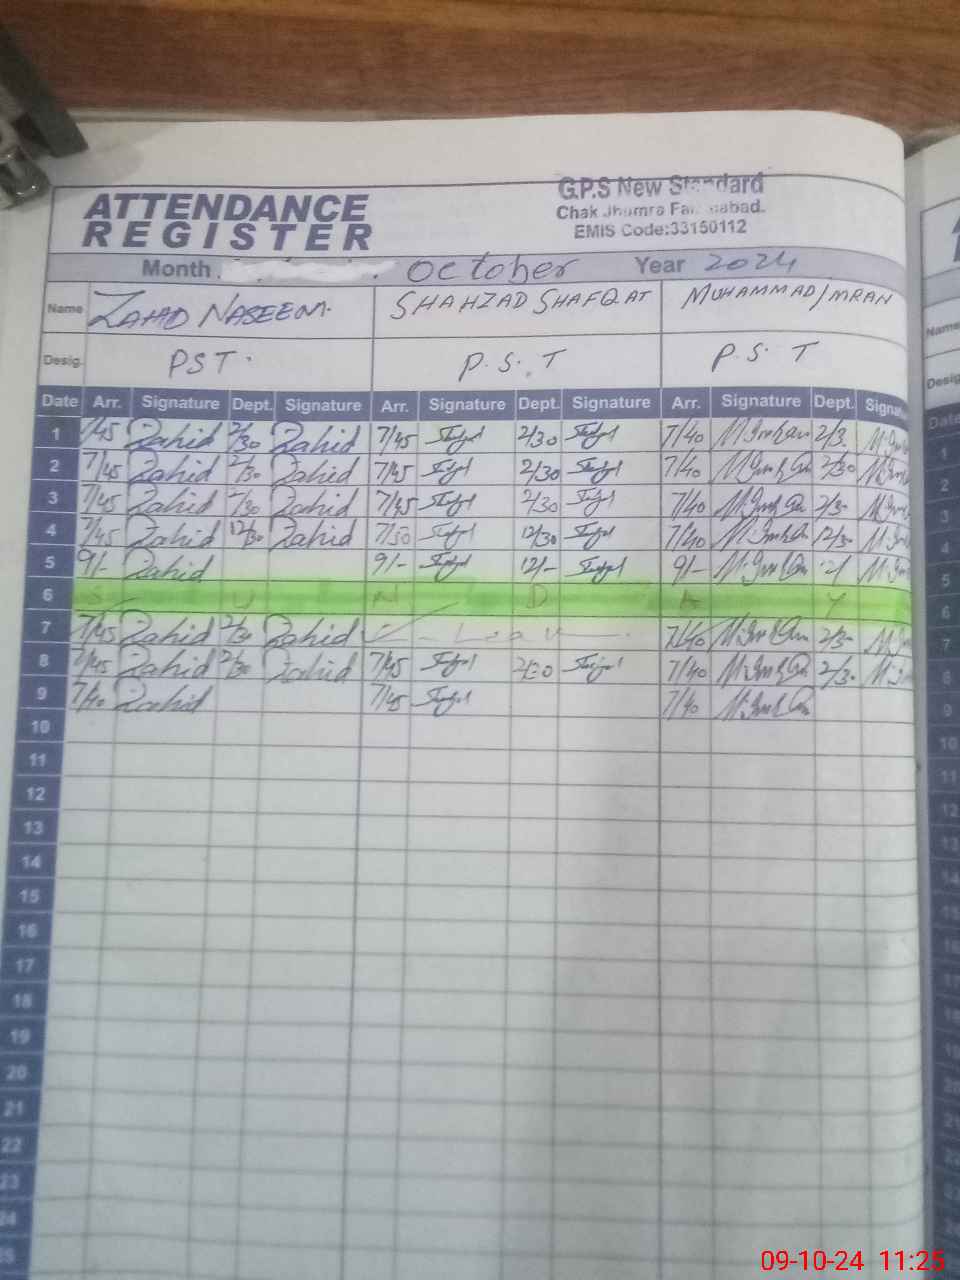 ATTENDANCE REGISTER
G.P.S New Standard
Chak Jhumra Faisalabad.
EMIS Code:33150112
Month October Year 2024
Name ZAHID NASEEM. SHAHZAD SHAFQAT MUHAMMAD IMRAN
Desig. PST. P.S.T P.S.T
Date Arr. Signature Dept. Signature Arr. Signature Dept. Signature Arr. Signature Dept. Signatu
1 7/45 Zahid 2/30 Zahid 7/45 2/30 7/40 M.Imran 2/3.
2 7/45 Zahid 2/30 Zahid 7/45 2/30 7/40 M.Imran 2/30
3 7/45 Zahid 2/30 Zahid 7/45 2/30 7/40 M.Imran 2/3-
4 7/45 Zahid 12/30 Zahid 7/30 12/30 7/40 M.Imran 12/3-
5 9/- Zahid 9/- 12/- 9/- M.Imran
6 S U N D A Y
7 7/45 Zahid 2/30 Zahid Leav 7/40 M.Imran 2/3-
8 7/45 Zahid 2/30 Zahid 7/45 2/30 7/40 M.Imran 2/3.
9 7/40 Zahid 7/45 7/40 M.Imran
10
11
12
13
14
15
16
17
18
19
20
21
22
23
24
25
Name
Desig
Date
1
2
3
4
5
6
7
8
9
10
11
12
13
14
15
16
17
18
19
20
21
22
23
24
09-10-24 11:25